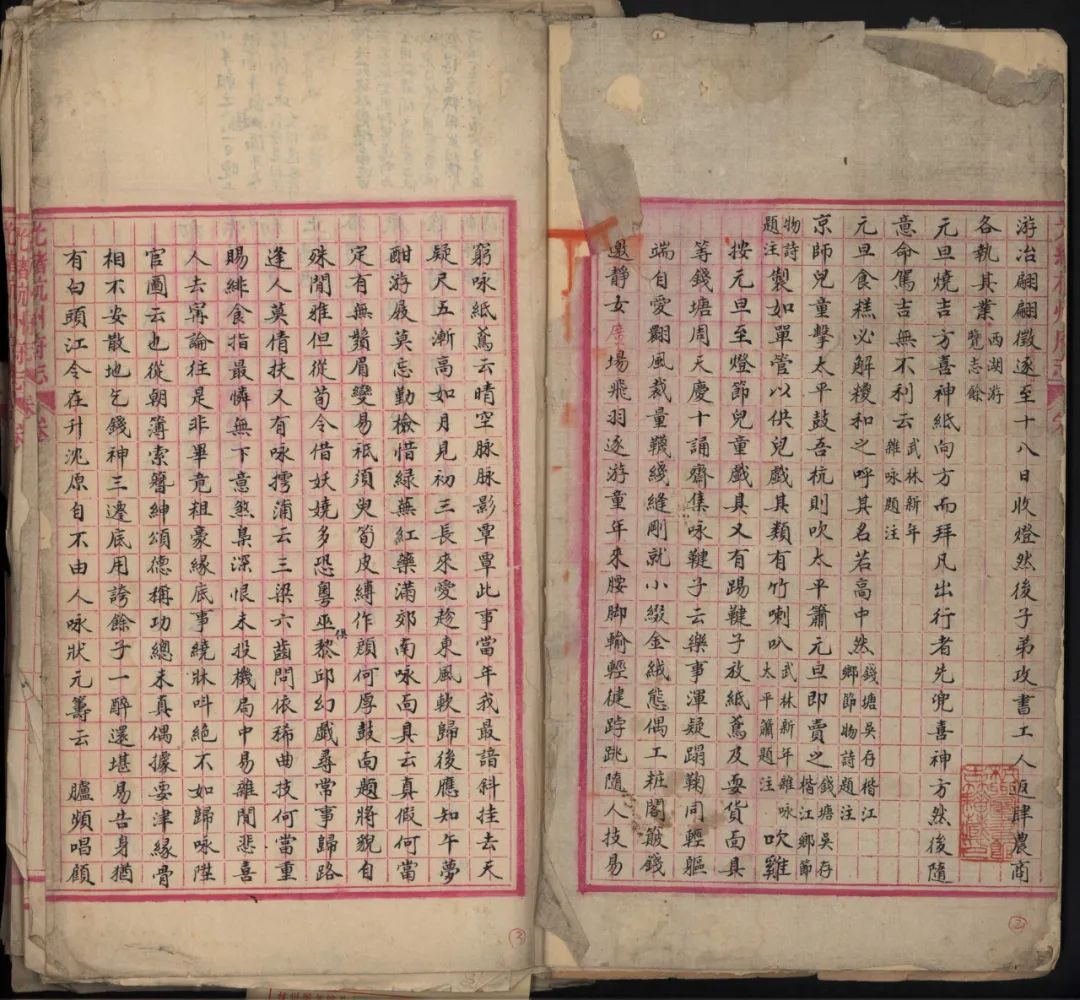 游冶翩翩徵逐至十八日收燈然後子弟攻書工人返肆農商
各執其業西湖游覽志餘
元旦燒吉方喜神紙向方而拜凡出行者先兜喜神方然後隨
意命駕吉無不利云武林新年雜咏題注
元旦食糕必解糉和之呼其名若高中然錢塘吳存楷江鄉節物詩題注
京師兒童擊太平鼓吾杭則吹太平簫元旦即賣之錢塘吳存楷江鄉節
物詩題注製如單管以供兒戲其類有竹喇叭武林新年雜咏太平簫題注吹雞
按元旦至燈節兒童戲具又有踢鞬子放紙鳶及耍貨面具
等錢塘周天慶十誦齋集咏鞬子云樂事渾疑蹋鞠同輕軀
端自愛翾風裁量韈綫縫剛就小綴金絨態偶工粧閣簸錢
邀靜女廣場飛羽逐游童年來腰脚輸輕健踔跳隨人技易
窮咏紙鳶云晴空脉脉影覃覃此事當年我最諳斜挂去天
疑尺五漸高如月見初三長來愛趁東風軟歸後應知午夢
酣游屐莫忘勤檢惜綠蕪紅藥滿郊南咏面具云真假何當
定有無鬚眉變易祇須臾筍皮縛作顏何厚鼓面題將貌自
殊閒雅但從荀令借妖嬈多恐粵巫俱黎邱幻戲尋常事歸路
逢人莫倩扶又有咏摴蒲云三梁六齒問依稀曲技何當重
賜緋食指最憐無下意煞梟深恨未投機局中易雜閒悲喜
人去甯論往是非畢竟粗豪緣底事繞牀呌絕不如歸咏陞
官圖云也從朝簿索簪紳頌德稱功總未真偶據要津緣骨
相不安散地乞錢神三遷底用誇餘子一醉還堪易告身猶
有白頭江令在升沈原自不由人咏狀元籌云　臚頻唱顧
②
③